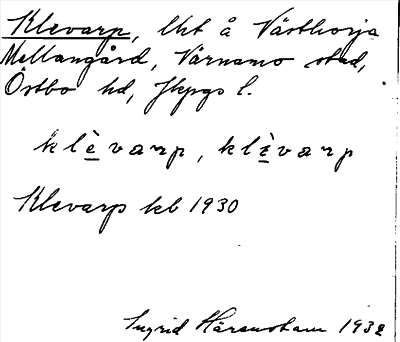 Klevarp, lht å Västhorja
Mellangård, Värnamo stad,
Östbo hd, Jkpgs l.
klèvarp, klèvarp
Klevarp kb 1930
Ingrid Härenstam 1932